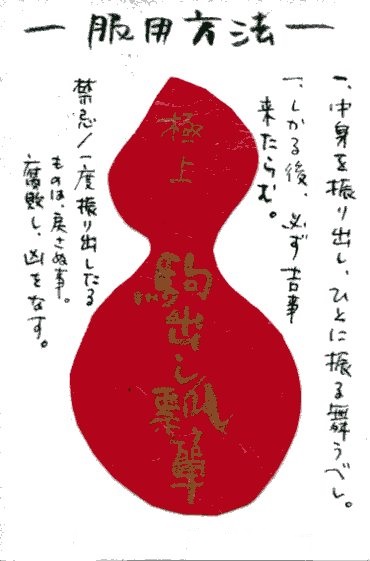 一服用方法一
一、中身を振り出し、ひとに振る舞うべし。
一、しかる後、必ず吉事
来たらむ。
極上
駒出し瓢箪
禁忌/一度振り出したる
ものは、戻さぬ事。
腐敗し、凶をなす。